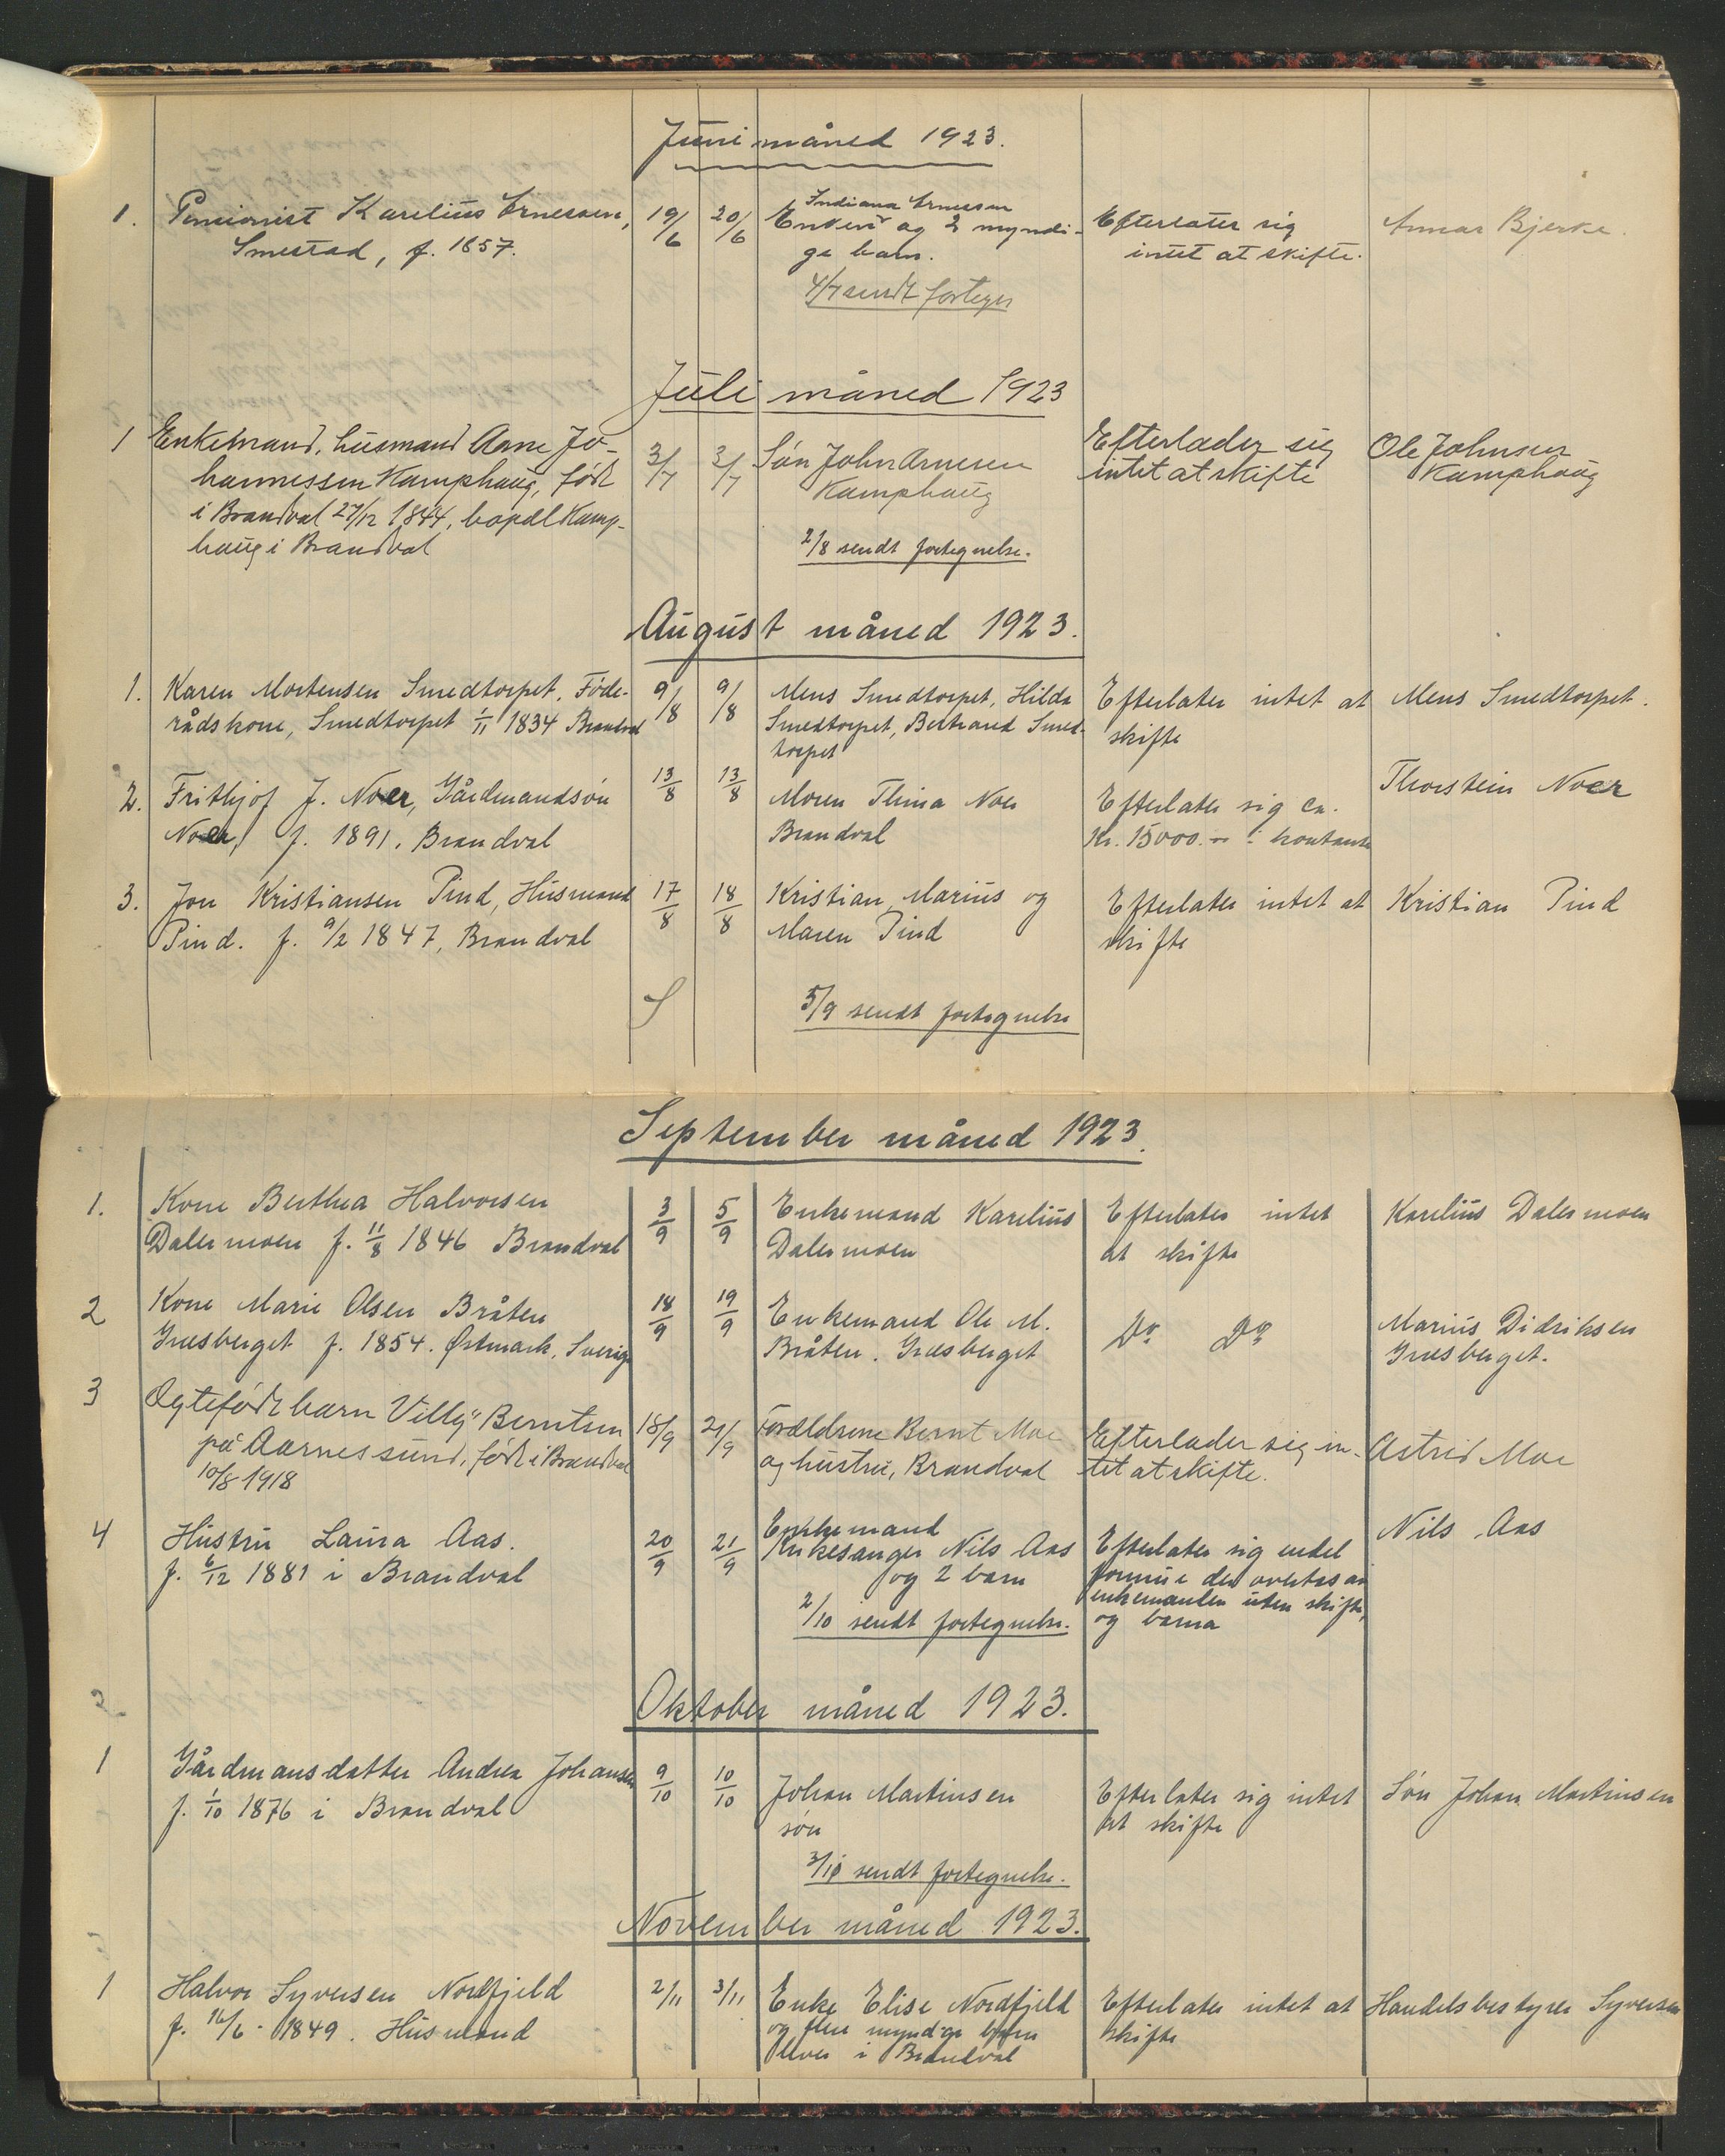 Juni måned 1923.
1. Pensionist Karelius Arnesen, 19/6 20/6 Indiana Arnesen Efterlater sig Annar Bjerke.
Smestad, f. 1857. Enken og 2 myndi- intet at skifte.
ge barn.
4/7 sendt fortegn
Juli måned 1923
1 Enkemand, husmand Arne Jo- 3/7 3/7 Søn John Arnesen Efterlader sig Ole Johnsen
hannessen Kamphaug, født Kamphaug intet at skifte Kamphaug
i Brandval 27/12 1844, bopæl Kamp-
haug i Brandval 2/8 sendt fortegnelse.
August måned 1923.
1. Karen Mortensen Smedtorpet, Føde- 9/8 9/8 Mens Smedtorpet, Hilda Efterlater intet at Mens Smedtorpet.
rådskone, Smedtorpet 1/11 1834 Brandval Smedtorpet, Bertrand Smed- skifte
torpet
2. Frithjof J. Noer, Gårdmandsøn 13/8 13/8 Moren Thina Noer Efterlater sig ca. Thorstein Noer
Noer, f. 1891, Brandval Brandval Kr. 15000.- i kontante
3. Jon Kristiansen Pind, Husmand 17/8 18/8 Kristian, Marius og Efterlater intet at Kristian Pind
Pind. f. 9/2 1847, Brandval Maren Pind skifte
5/9 sendt fortegnelse
September måned 1923.
1. Kone Berthea Halvorsen 3/9 5/9 Enkemand Karelius Efterlater intet Karelius Dalermoen
Dalermoen f. 11/8 1846 Brandval Dalermoen at skifte
2 Kone Marie Olsen Bråten 18/9 19/9 Enkemand Ole M. Do Do Marius Didriksen
Græsberget f. 1854. Østmark, Sverige Bråten. Græsberget Græsberget.
3 Ægtefødt barn "Villy" Berntsen 18/9 21/9 Forældrene Bernt Moe Efterlader sig in- Astrid Moe
på Aarnessund, født i Brandval og hustru, Brandval tet at skifte.
10/8 1918
4 Hustru Laura Aas. 20/9 21/9 Enkemand Efterlater sig endel Nils Aas
f. 6/12 1881 i Brandval Kirkesanger Nils Aas formue der overtas av
og 2 barn enkemanden uten skifte,
2/10 sendt fortegnelse. og barna
Oktober måned 1923.
1 Gårdmansdatter Andrea Johansen 9/10 10/10 Johan Martinsen Efterlater sig intet Søn Johan Martinsen
f. 1/10 1876 i Brandval søn at skifte
3/10 sendt fortegnelse.
November måned 1923.
1 Halvor Syversen Nordfjeld 2/11 3/11 Enke Elise Nordfjeld Efterlater intet at Handelsbestyrer Syversen
f. 16/6 - 1849. Husmand og flere myndige børn skifte
lever i Brandval